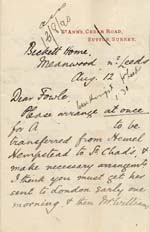 12/8/20
St. Ann's, Cedar Road,
Sutton, Surrey.
Beckett Home,
Meanwood nr. Leeds
Aug. 12
Dear Fowle
Please arrange at once
for A to be
transferred from Hemel
Hempstead to St. Chad's, &
make necessary arrangemts
I think you must get her
sent to London early one
morning & then Mr William